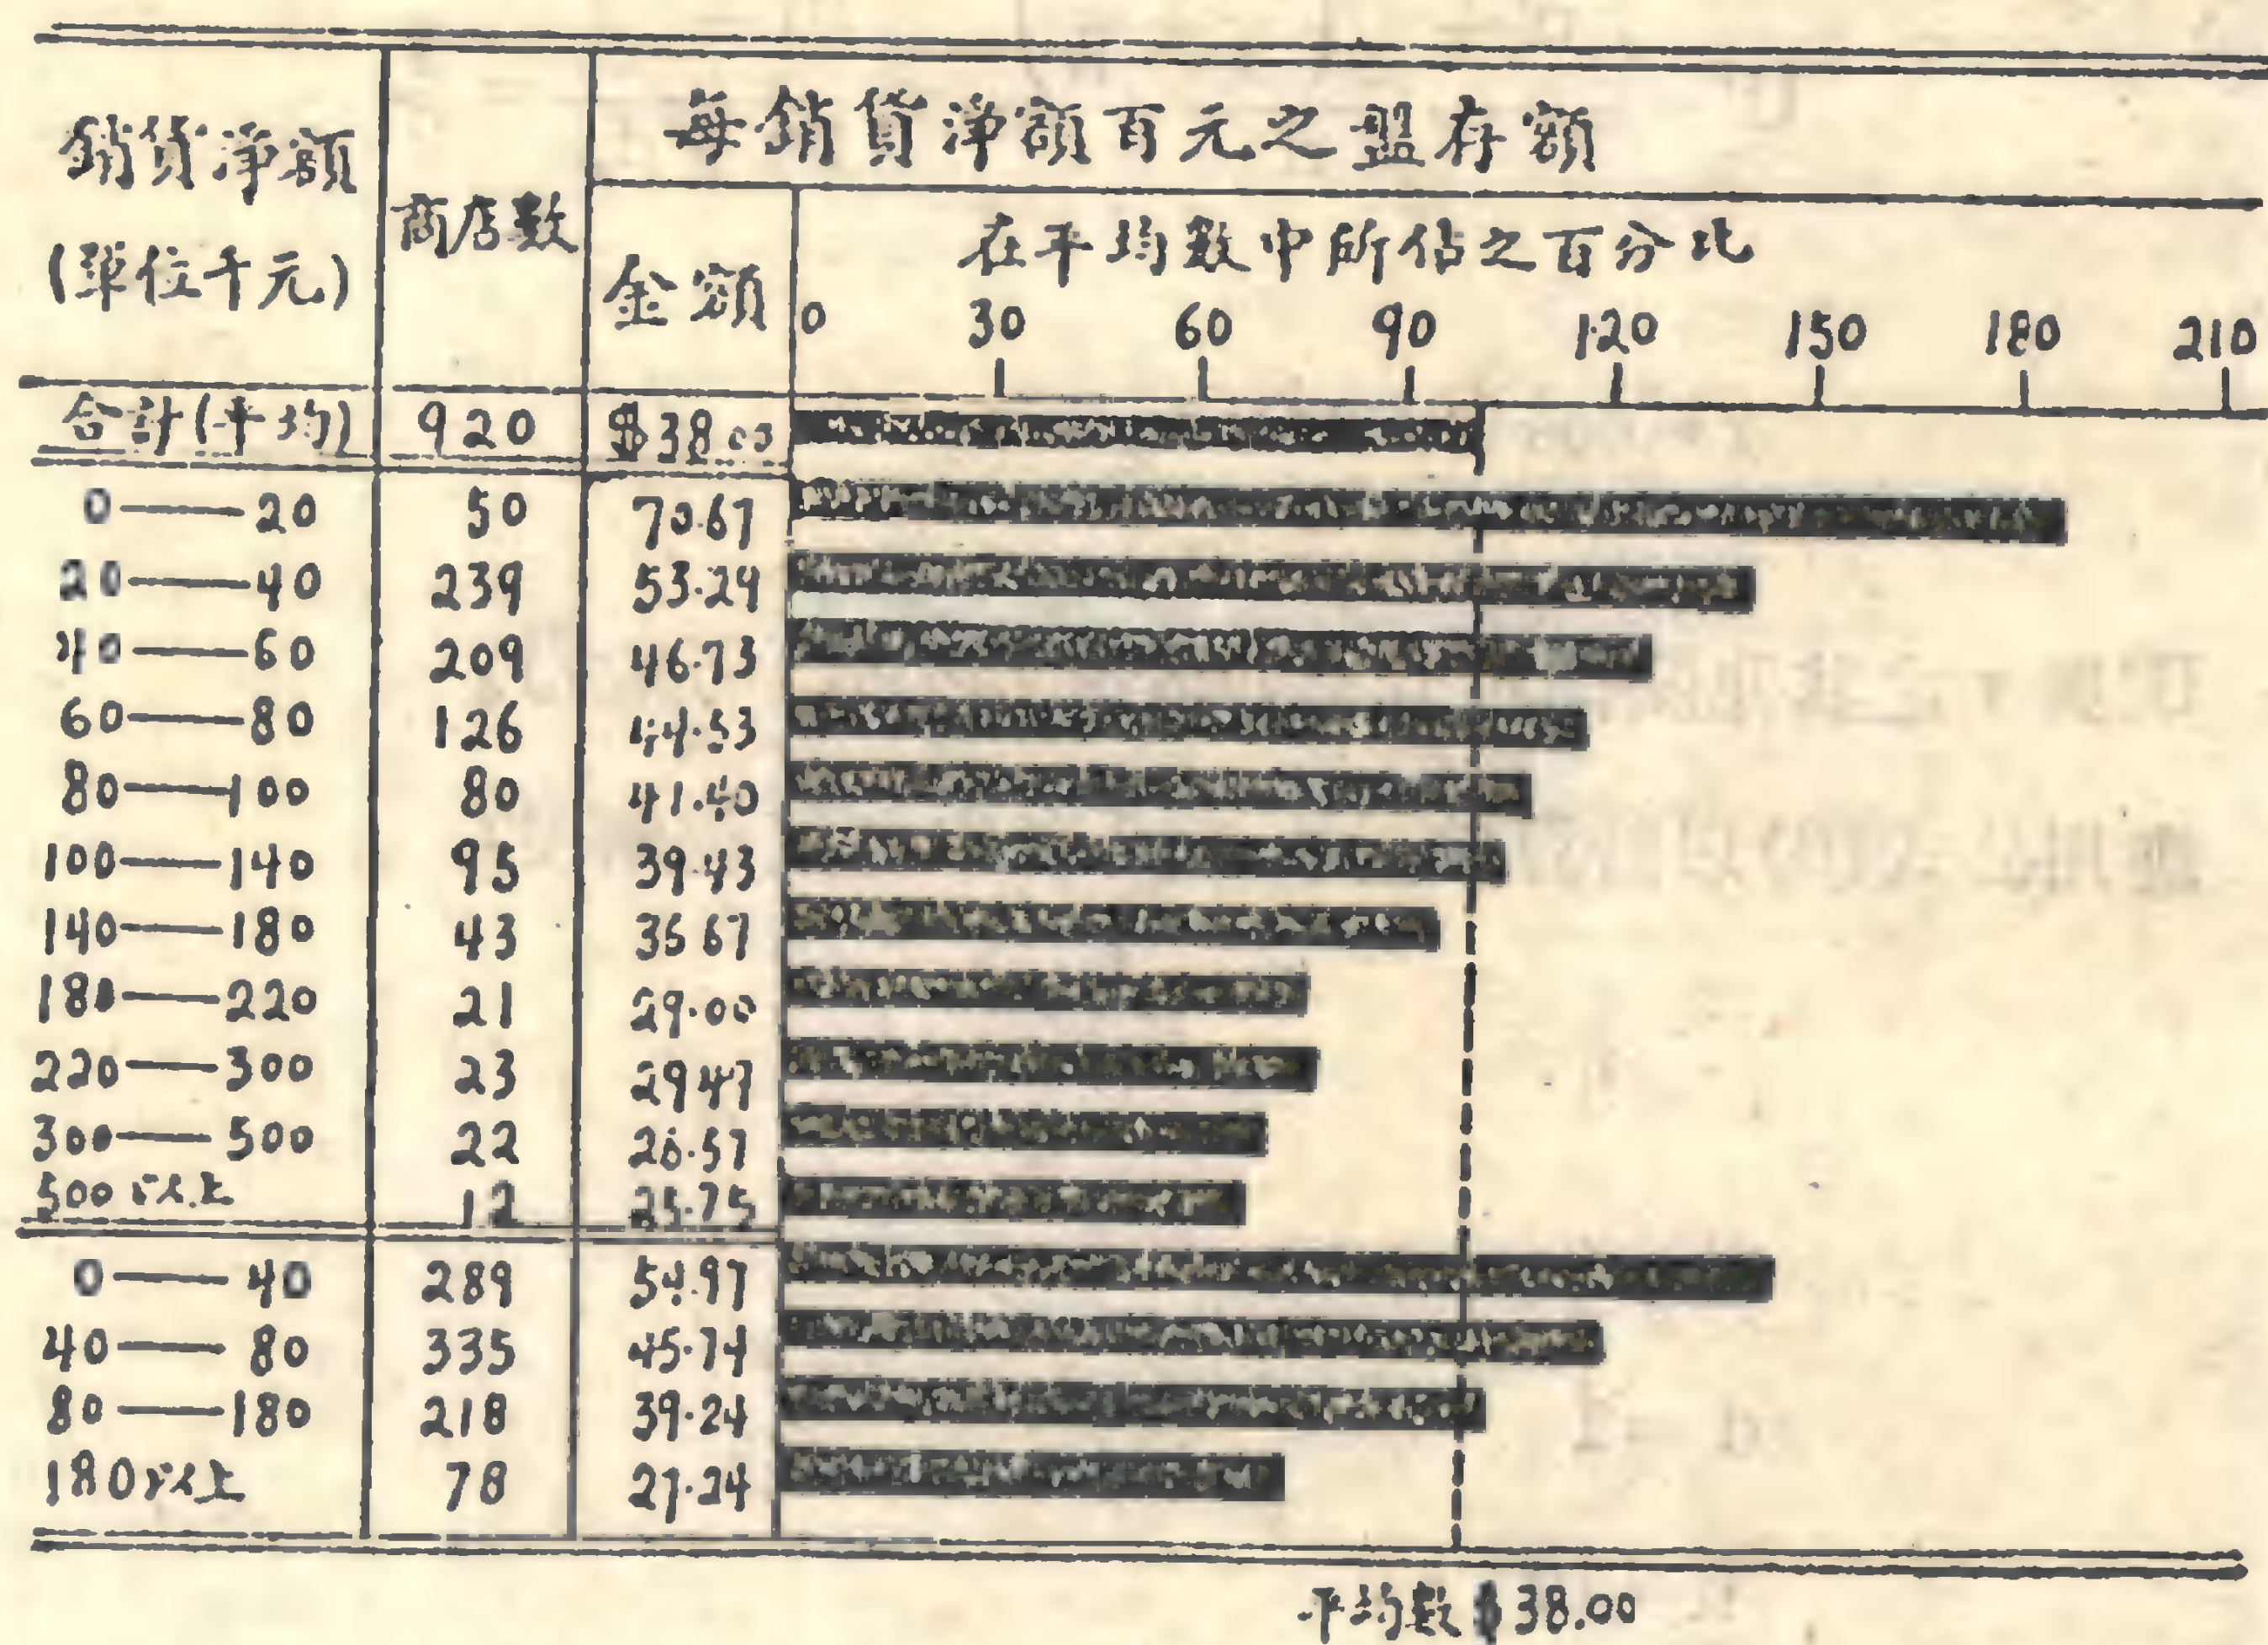 每銷貨淨額百元之盤存額
銷貨淨額
(單位千元)
商店數
金額
在平均數中所佔之百分比
0 30 60 90 120 150 180 210
合計(平均) 920 $38.00
0——20 50 70.67
20——40 239 53.29
40——60 209 46.73
60——80 126 44.53
80——100 80 41.40
100——140 95 39.43
140——180 43 35 67
180——220 21 29.00
220——300 23 29 47
300——500 22 26.57
500以上 12 25.75
0——40 289 54.97
40——80 335 45.74
80——180 218 39.24
180以上 78 27.24
平均數$38.00